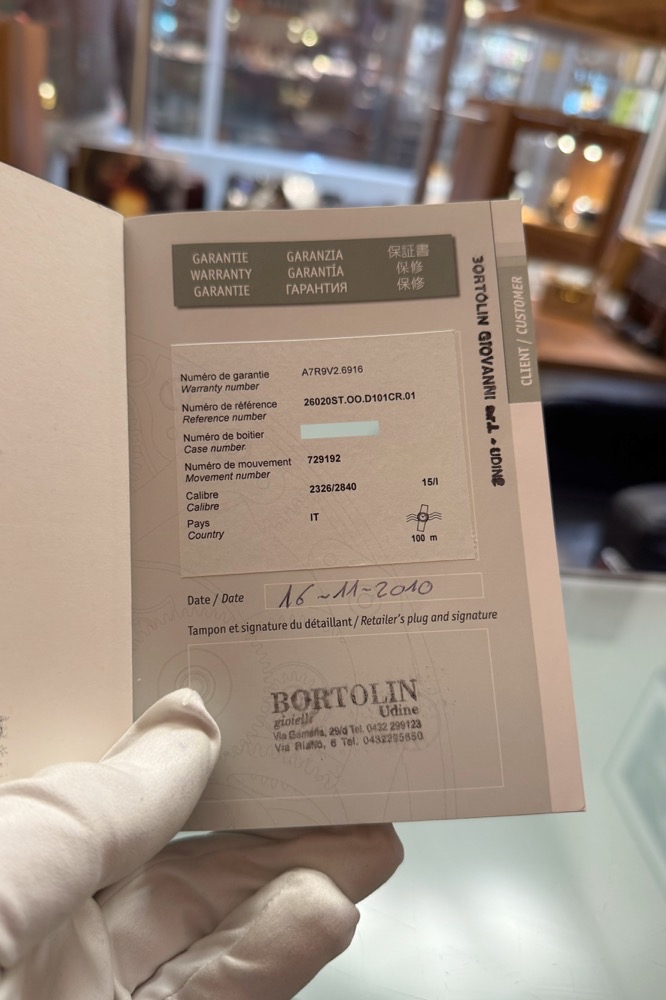 GARANTIE
GARANZIA
保証書
WARRANTY
GARANTÍA
保修
GARANTIE
ГАРАНТИЯ
保修
CLIENT / CUSTOMER
BORTOLIN GIOVANNI
UDINE
Numéro de garantie
A7R9V2.6916
Warranty number
Numéro de référence
26020ST.OO.D101CR.01
Reference number
Numéro de boitier
Case number
Numéro de mouvement
729192
Movement number
Calibre
2326/2840
15/I
Calibre
Pays
IT
Country
100 m
Date / Date
16-11-2010
Tampon et signature du détaillant / Retailer's plug and signature
BORTOLIN
gioielli
Udine
29/d Tel. 0432 299123
Via
6 Tel.